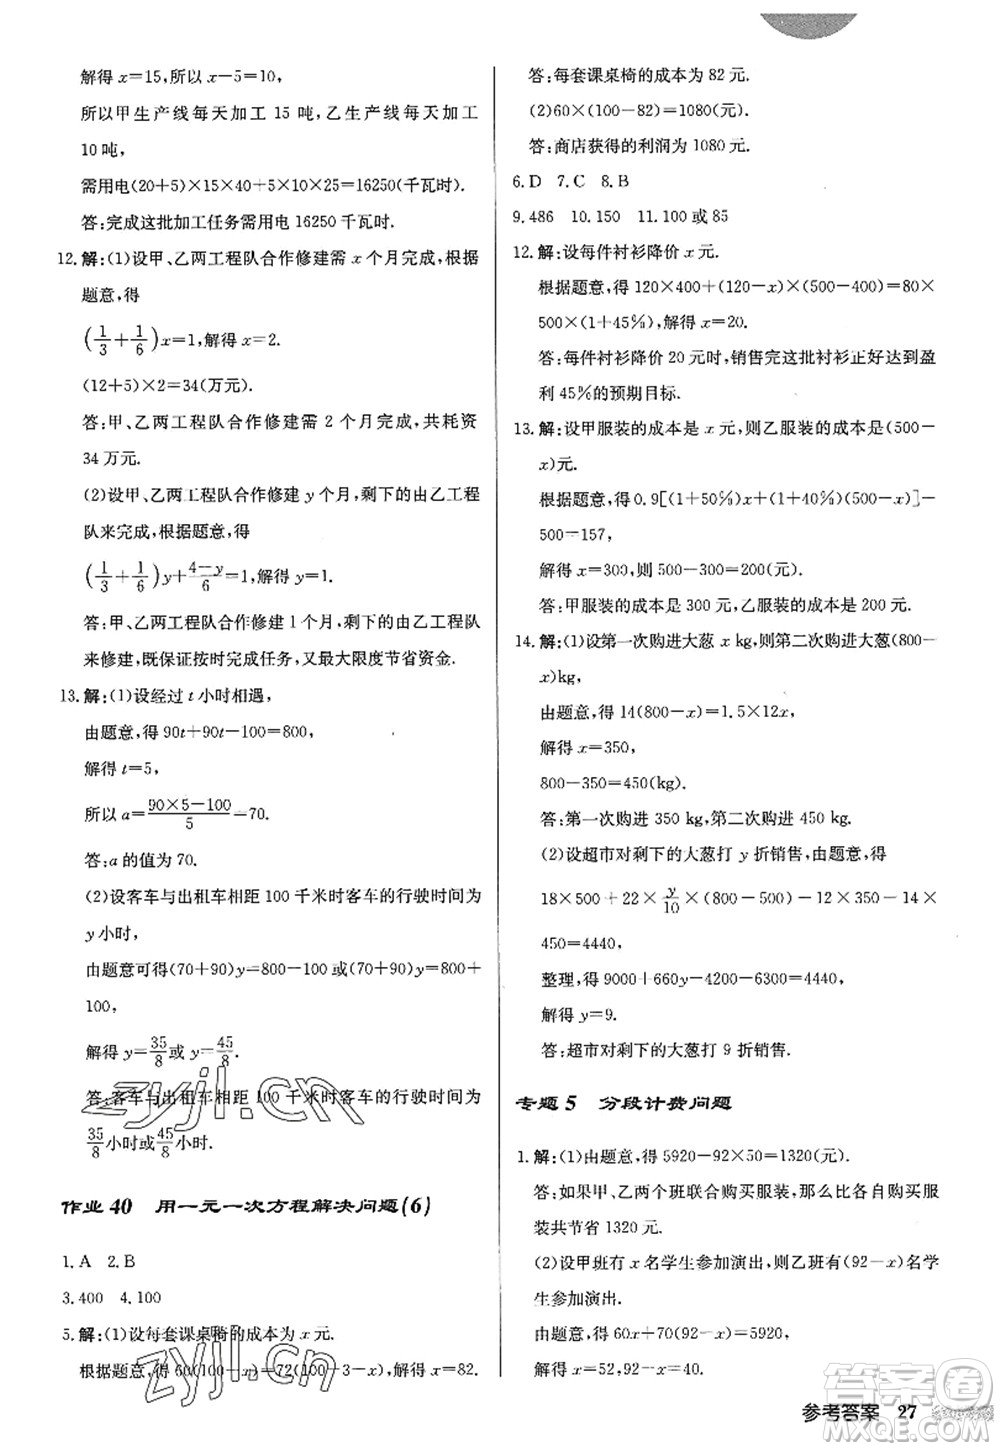 解得 x=15,所以 x-5=10,
所以甲生产线每天加工 15 吨,乙生产线每天加工
10 吨,
需用电(20+5)×15×40+5×10×50=16250(千瓦时).
答:完成这批加工任务需用电 16250 千瓦时.
12. 解:(1)设甲、乙两工程队合作修建需 x 个月完成,根据
题意,得
(1/3+1/6)x=1,解得 x=2.
(12+5)×2=34(万元).
答:甲、乙两工程队合作修建需 2 个月完成,共耗资
34 万元.
(2)设甲、乙两工程队合作修建 y 个月,剩下的由乙工程
队来完成,根据题意,得
(1/3+1/6)y+(4-y)/6=1,解得 y=1.
答:甲、乙两工程队合作修建 1 个月,剩下的由乙工程队
来修建,既保证按时完成任务,又最大限度节省资金.
13. 解:(1)设经过 t 小时相遇,
由题意,得 90t+90t-100=800,
解得 t=5,
所以 a=(90×5-100)/5=70.
答:a 的值为 70.
(2)设客车与出租车相距 100 千米时客车的行驶时间为
y 小时,
由题意可得(70+90)y=800-100 或(70+90)y=800+
100,
解得 y=35/8 或 y=45/8.
答:客车与出租车相距 100 千米时客车的行驶时间为
35/8 小时或 45/8 小时.
作业 40 用一元一次方程解决问题(6)
1. A 2. B
3. 400 4. 100
5. 解:(1)设每套课桌椅的成本为 x 元.
根据题意,得 60(100-x)=72(100-3-x),解得 x=82.
答:每套课桌椅的成本为 82 元.
(2)60×(100-82)=1080(元).
答:商店获得的利润为 1080 元.
6. D 7. C 8. B
9. 486 10. 150 11. 100 或 85
12. 解:设每件衬衫降价 x 元.
根据题意,得 120×400+(120-x)×(500-400)=80×
500×(1+45%),解得 x=20.
答:每件衬衫降价 20 元时,销售完这批衬衫正好达到盈
利 45%的预期目标.
13. 解:设甲服装的成本是 x 元,则乙服装的成本是(500-
x)元.
根据题意,得 0.9[(1+50%)x+(1+40%)(500-x)]-
500=157,
解得 x=300,则 500-300=200(元).
答:甲服装的成本是 300 元,乙服装的成本是 200 元.
14. 解:(1)设第一次购进大葱 x kg,则第二次购进大葱(800-
x)kg,
由题意,得 14(800-x)=1.5×12x,
解得 x=350,
800-350=450(kg).
答:第一次购进 350 kg,第二次购进 450 kg.
(2)设超市对剩下的大葱打 y 折销售,由题意,得
18×500+22×y/10×(800-500)-12×350-14×
450=4440,
整理,得 9000+660y-4200-6300=4440,
解得 y=9.
答:超市对剩下的大葱打 9 折销售.
专题 5 分段计费问题
1. 解:(1)由题意,得 5920-92×50=1320(元).
答:如果甲、乙两个班联合购买服装,那么比各自购买服
装共节省 1320 元.
(2)设甲班有 x 名学生参加演出,则乙班有(92-x)名学
生参加演出.
由题意,得 60x+70(92-x)=5920,
解得 x=52,92-x=40.
参考答案 27
zyjl.cn
zyjl.cn
答案圈